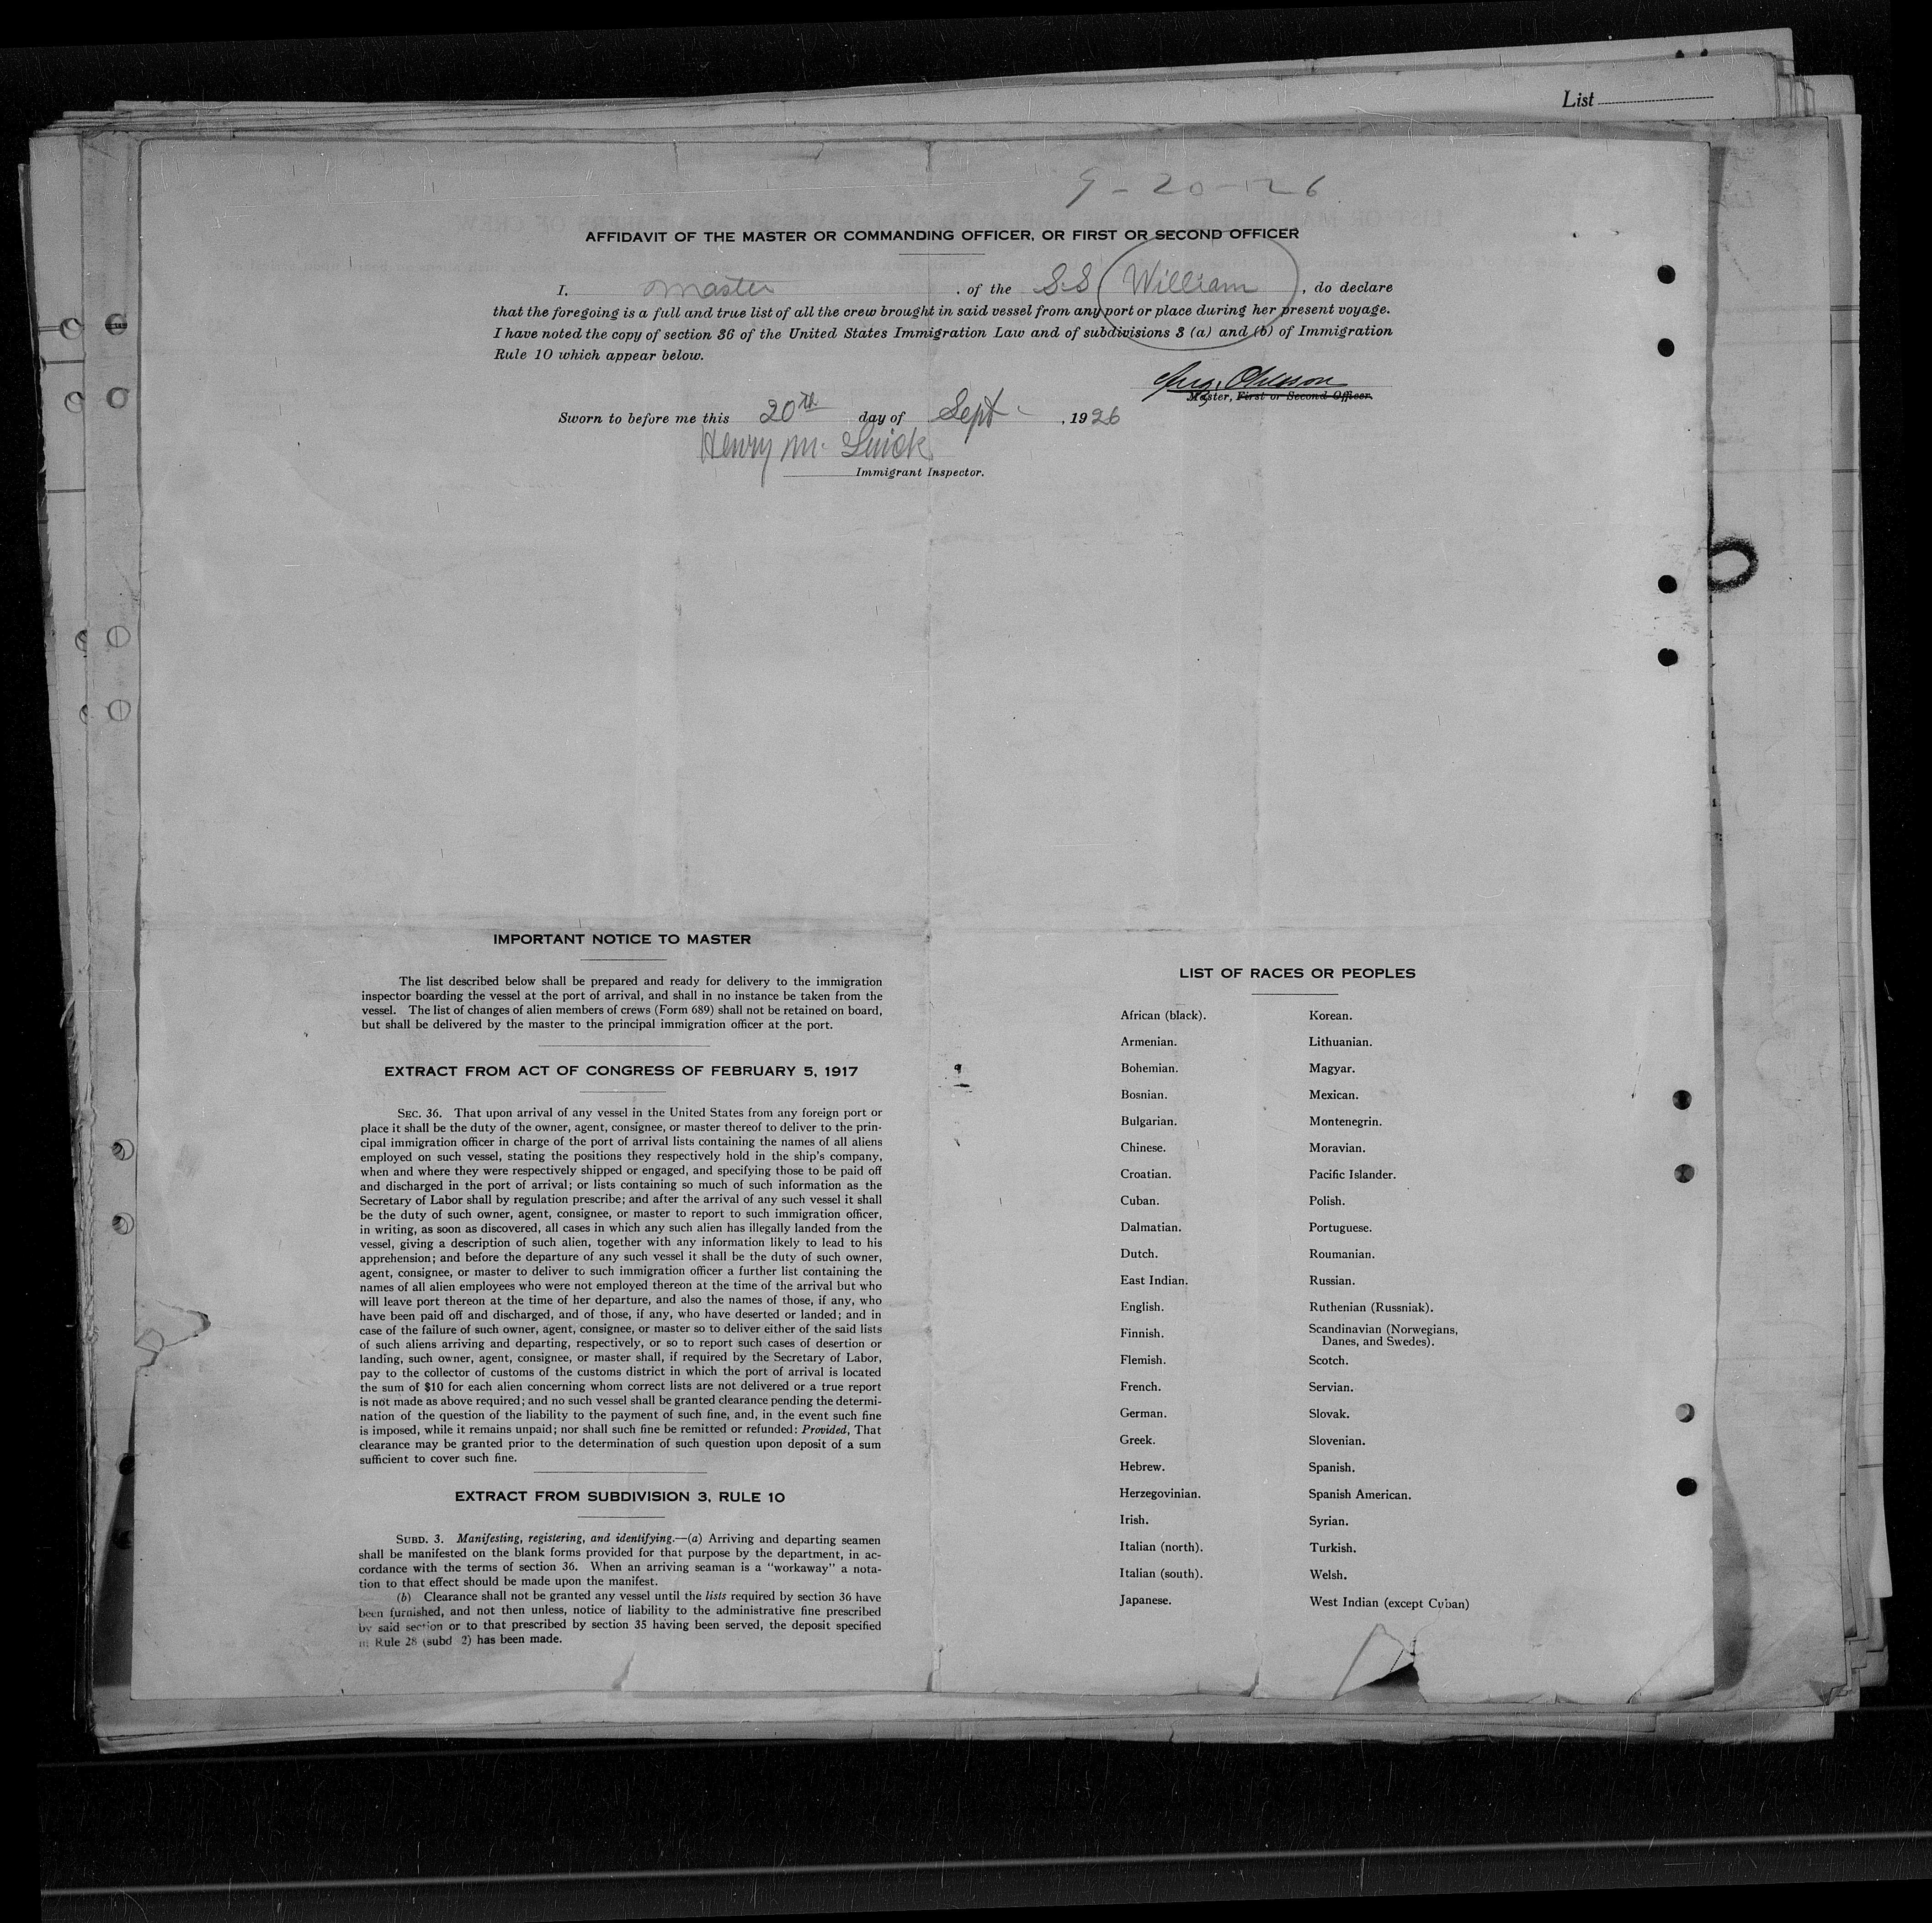 List
9-20-26
AFFIDAVIT OF THE MASTER OR COMMANDING OFFICER, OR FIRST OR SECOND OFFICER
I, Master, of the S.S. William, do declare
that the foregoing is a full and true list of all the crew brought in said vessel from any port or place during her present voyage.
I have noted the copy of section 36 of the United States Immigration Law and of subdivisions 3 (a) and (b) of Immigration
Rule 10 which appear below.
Aug.
Master, First or Second Officer.
Sworn to before me this 20th day of Sept, 1926
Henry M.
Immigrant Inspector.
IMPORTANT NOTICE TO MASTER
The list described below shall be prepared and ready for delivery to the immigration
inspector boarding the vessel at the port of arrival, and shall in no instance be taken from the
vessel. The list of changes of alien members of crews (Form 689) shall not be retained on board,
but shall be delivered by the master to the principal immigration officer at the port.
EXTRACT FROM ACT OF CONGRESS OF FEBRUARY 5, 1917
SEC. 36. That upon arrival of any vessel in the United States from any foreign port or
place it shall be the duty of the owner, agent, consignee, or master thereof to deliver to the prin-
cipal immigration officer in charge of the port of arrival lists containing the names of all aliens
employed on such vessel, stating the positions they respectively hold in the ship's company,
when and where they were respectively shipped or engaged, and specifying those to be paid off
and discharged in the port of arrival; or lists containing so much of such information as the
Secretary of Labor shall by regulation prescribe; and after the arrival of any such vessel it shall
be the duty of such owner, agent, consignee, or master to report to such immigration officer,
in writing, as soon as discovered, all cases in which any such alien has illegally landed from the
vessel, giving a description of such alien, together with any information likely to lead to his
apprehension; and before the departure of any such vessel it shall be the duty of such owner,
agent, consignee, or master to deliver to such immigration officer a further list containing the
names of all alien employees who were not employed thereon at the time of the arrival but who
will leave port thereon at the time of her departure, and also the names of those, if any, who
have been paid off and discharged, and of those, if any, who have deserted or landed; and in
case of the failure of such owner, agent, consignee, or master so to deliver either of the said lists
of such aliens arriving and departing, respectively, or so to report such cases of desertion or
landing, such owner, agent, consignee, or master shall, if required by the Secretary of Labor,
pay to the collector of customs of the customs district in which the port of arrival is located
the sum of $10 for each alien concerning whom correct lists are not delivered or a true report
is not made as above required; and no such vessel shall be granted clearance pending the determi-
nation of the question of the liability to the payment of such fine, and, in the event such fine
is imposed, while it remains unpaid; nor shall such fine be remitted or refunded: Provided, That
clearance may be granted prior to the determination of such question upon deposit of a sum
sufficient to cover such fine.
EXTRACT FROM SUBDIVISION 3, RULE 10
SUBD. 3. Manifesting, registering, and identifying.—(a) Arriving and departing seamen
shall be manifested on the blank forms provided for that purpose by the department, in ac-
cordance with the terms of section 36. When an arriving seaman is a "workaway" a nota-
tion to that effect should be made upon the manifest.
(b) Clearance shall not be granted any vessel until the lists required by section 36 have
been furnished, and not then unless, notice of liability to the administrative fine prescribed
by said section or to that prescribed by section 35 having been served, the deposit specified
in Rule 28 (subd 2) has been made.
LIST OF RACES OR PEOPLES
African (black).
Armenian.
Bohemian.
Bosnian.
Bulgarian.
Chinese.
Croatian.
Cuban.
Dalmatian.
Dutch.
East Indian.
English.
Finnish.
Flemish.
French.
German.
Greek.
Hebrew.
Herzegovinian.
Irish.
Italian (north).
Italian (south).
Japanese.
Korean.
Lithuanian.
Magyar.
Mexican.
Montenegrin.
Moravian.
Pacific Islander.
Polish.
Portuguese.
Roumanian.
Russian.
Ruthenian (Russniak).
Scandinavian (Norwegians,
Danes, and Swedes).
Scotch.
Servian.
Slovak.
Slovenian.
Spanish.
Spanish American.
Syrian.
Turkish.
Welsh.
West Indian (except Cuban)